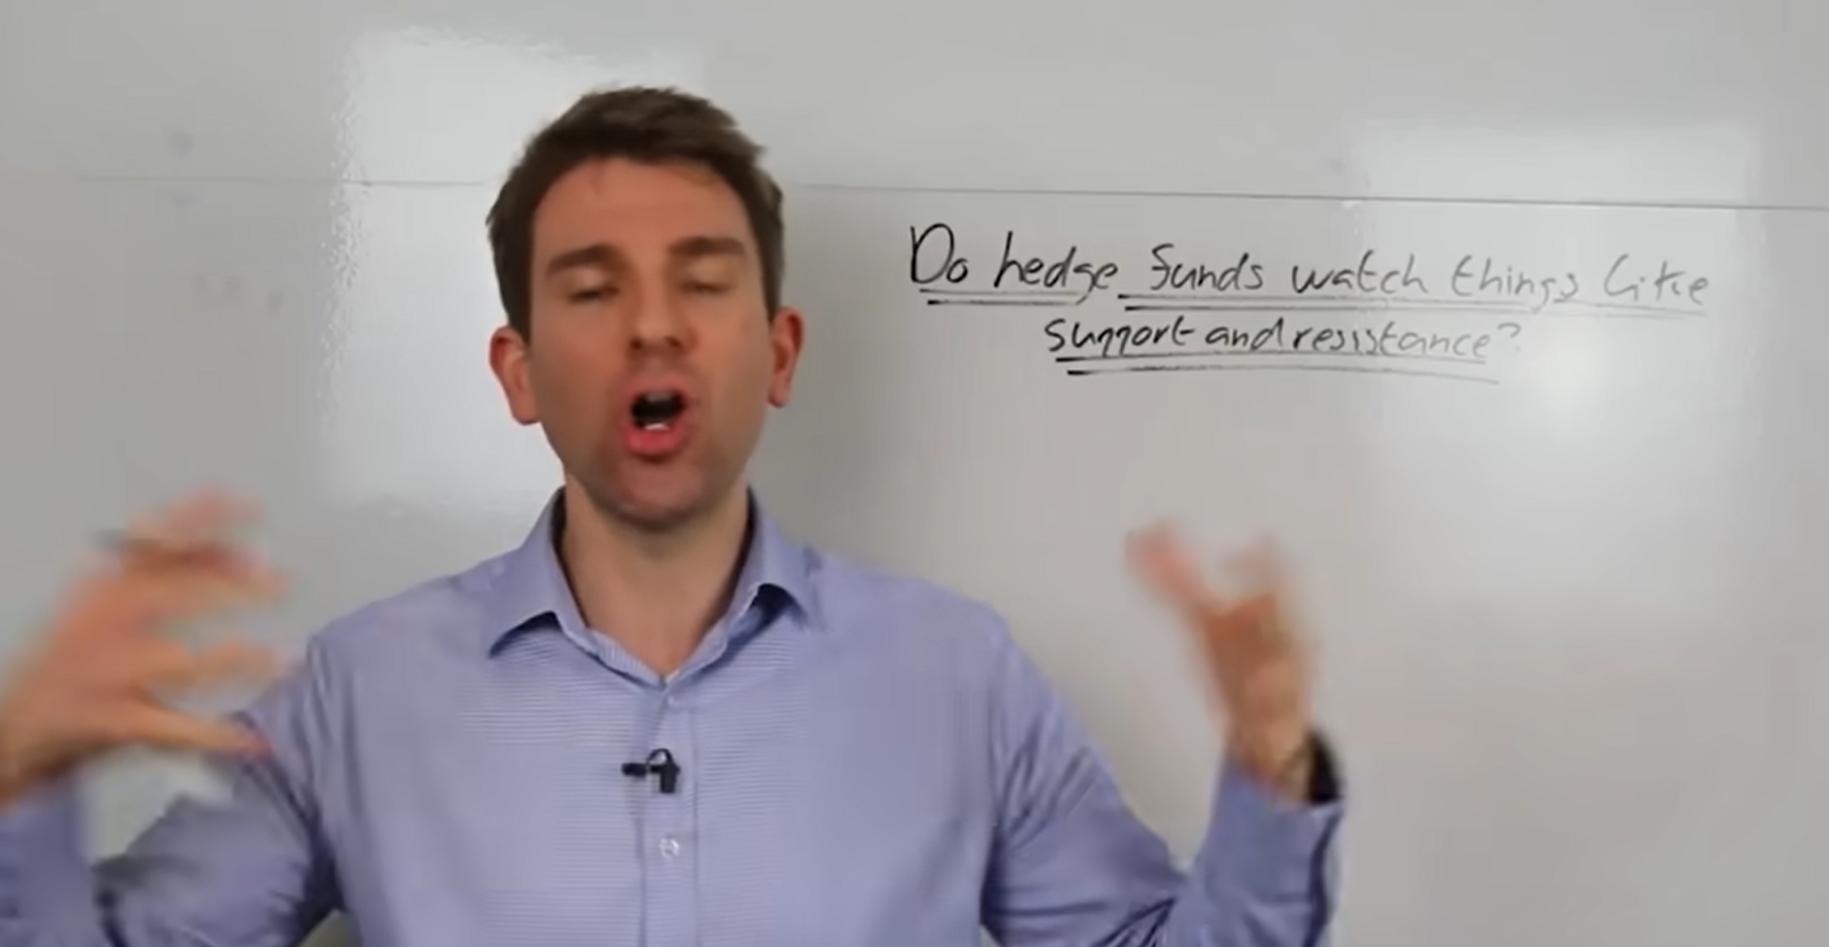 Do hedge funds watch things like
support and resistance?